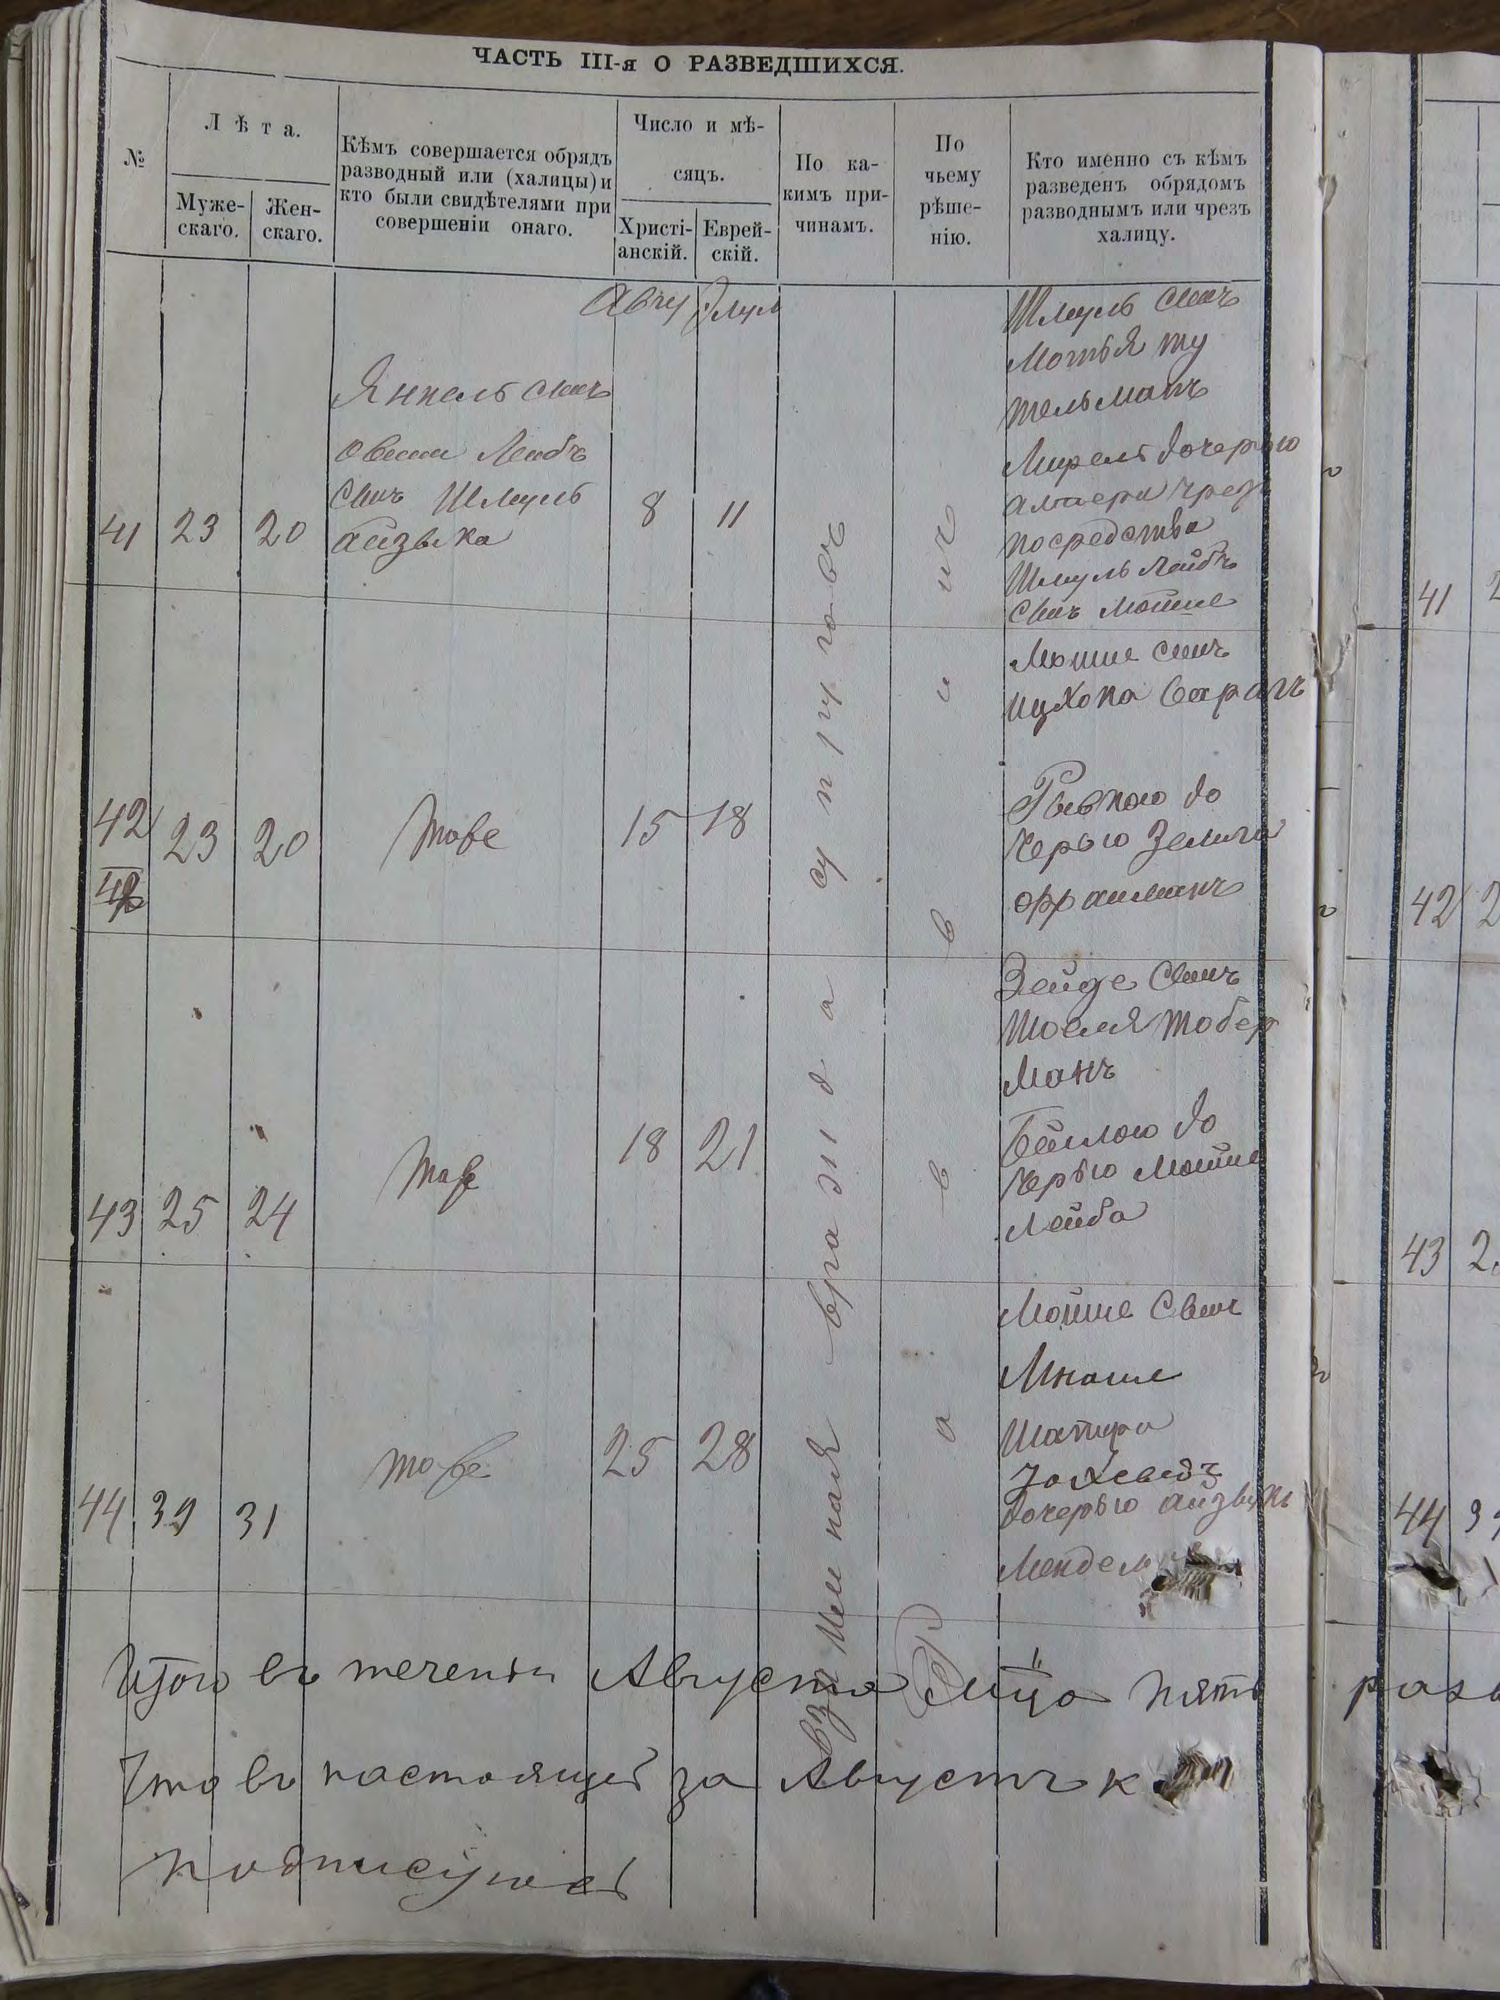 ЧАСТЬ III-я О РАЗВЕДШИХСЯ.
№
Лѣта.
Муже-
скаго.
Жен-
скаго.
Кѣмъ совершается обрядъ
разводный или (халицы) и
кто были свидѣтелями при
совершеніи онаго.
Число и мѣ-
сяцъ.
Христі-
анскій.
Еврей-
скій.
По ка-
кимъ при-
чинамъ.
По
чьему
рѣше-
нію.
Кто именно съ кѣмъ
разведенъ обрядомъ
разводнымъ или чрезъ
халицу.
Авгу Элул
41 23 20
Янкель сынъ
Овшии Лейбъ
сынъ Шмуль
Айзыка
8 11
Шмуль сынъ
Мотья ту
тельманъ
Мирель дочерью
Алтера чрез
посредства
Шмуль Лейбъ
сынъ Мошке
42 23 20
тоже
15 18
Мошке сынъ
Ицхока Варагъ
Рывкою до
черью Зелига
Фраиманъ
43 25 24
тоже
18 21
Зейде сынъ
Иоселя Тобер
манъ
Бейлою до
черью Мошке
Лейба
44 39 31
тоже
25 28
Мошке сынъ
Мнаше
Шапира
Иохеведъ
дочерью Айзыкъ
Мендель
взаимная вражда супруговъ
Раввинъ
Итого въ теченіи Августа м-ца пять
что въ настоящей за Августъ к
подписуюсь
41
42 2
43 2
44 3